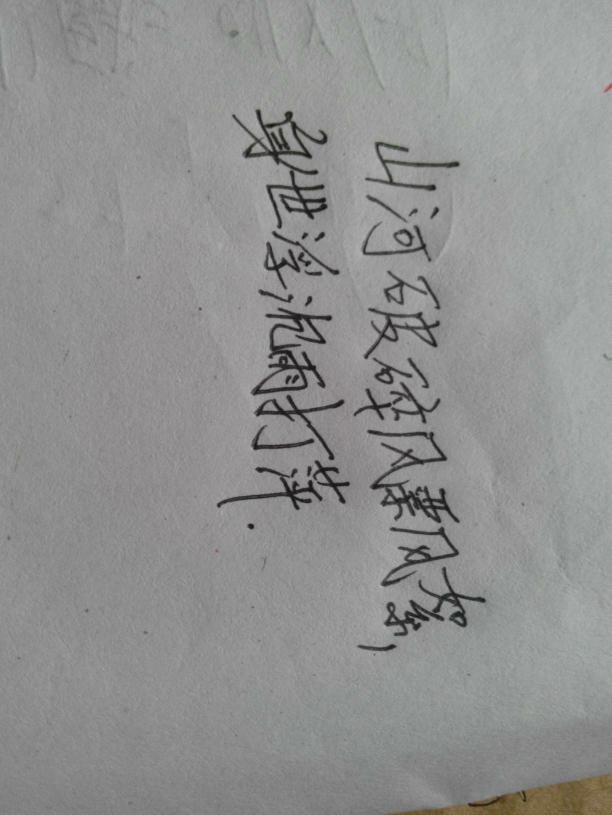 山河破碎风飘絮,
身世浮沉雨打萍.